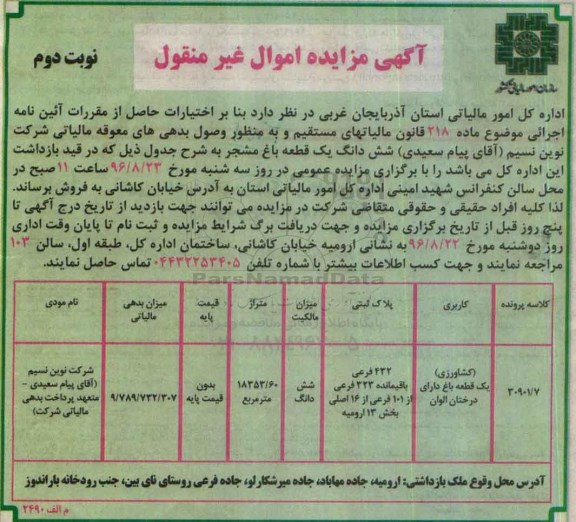 آگهی مزایده اموال غیر منقول
نوبت دوم
سازمان امور مالیاتی کشور
اداره کل امور مالیاتی استان آذربایجان غربی در نظر دارد بنا بر اختیارات حاصل از مقررات آئین نامه
اجرائی موضوع ماده ۲۱۸ قانون مالیاتهای مستقیم و به منظور وصول بدهی های معوقه مالیاتی شرکت
نوین نسیم (آقای پیام سعیدی) شش دانگ یک قطعه باغ مشجر به شرح جدول ذیل که در قید بازداشت
این اداره کل می باشد را با برگزاری مزایده عمومی در روز سه شنبه مورخ ۹۶/۸/۲۳ ساعت ۱۱ صبح در
محل سالن کنفرانس شهید امینی اداره کل امور مالیاتی استان به آدرس خیابان کاشانی به فروش برساند.
لذا کلیه افراد حقیقی و حقوقی متقاضی شرکت در مزایده می توانند جهت بازدید از تاریخ درج آگهی تا
پنج روز قبل از تاریخ برگزاری مزایده و جهت دریافت برگ شرایط مزایده و ثبت نام تا پایان وقت اداری
روز دوشنبه مورخ ۹۶/۸/۲۲ به نشانی ارومیه خیابان کاشانی، ساختمان اداره کل، طبقه اول، سالن ۱۰۳
مراجعه نمایند و جهت کسب اطلاعات بیشتر با شماره تلفن ۰۴۴۳۲۲۵۳۴۰۵ تماس حاصل نمایند.
ParsNamadData
کلاسه پرونده
کاربری
پلاک ثبتی
میزان مالکیت
متراژ
قیمت پایه
میزان بدهی مالیاتی
نام مودی
۳۰۹۰۱/۷
(کشاورزی)
یک قطعه باغ دارای
درختان الوان
۴۳۲ فرعی
باقیمانده ۳۲۳ فرعی
از ۱۰۱ فرعی از ۱۶ اصلی
بخش ۱۳ ارومیه
شش
دانگ
۱۸۳۵۲/۶۰
مترمربع
بدون
قیمت پایه
۹/۷۸۹/۷۳۲/۳۰۷
شرکت نوین نسیم
(آقای پیام سعیدی -
متعهد پرداخت بدهی
مالیاتی شرکت)
آدرس محل وقوع ملک بازداشتی: ارومیه، جاده مهاباد، جاده میرشکارلو، جاده فرعی روستای نای بین، جنب رودخانه باراندوز
م الف ۲۴۹۰